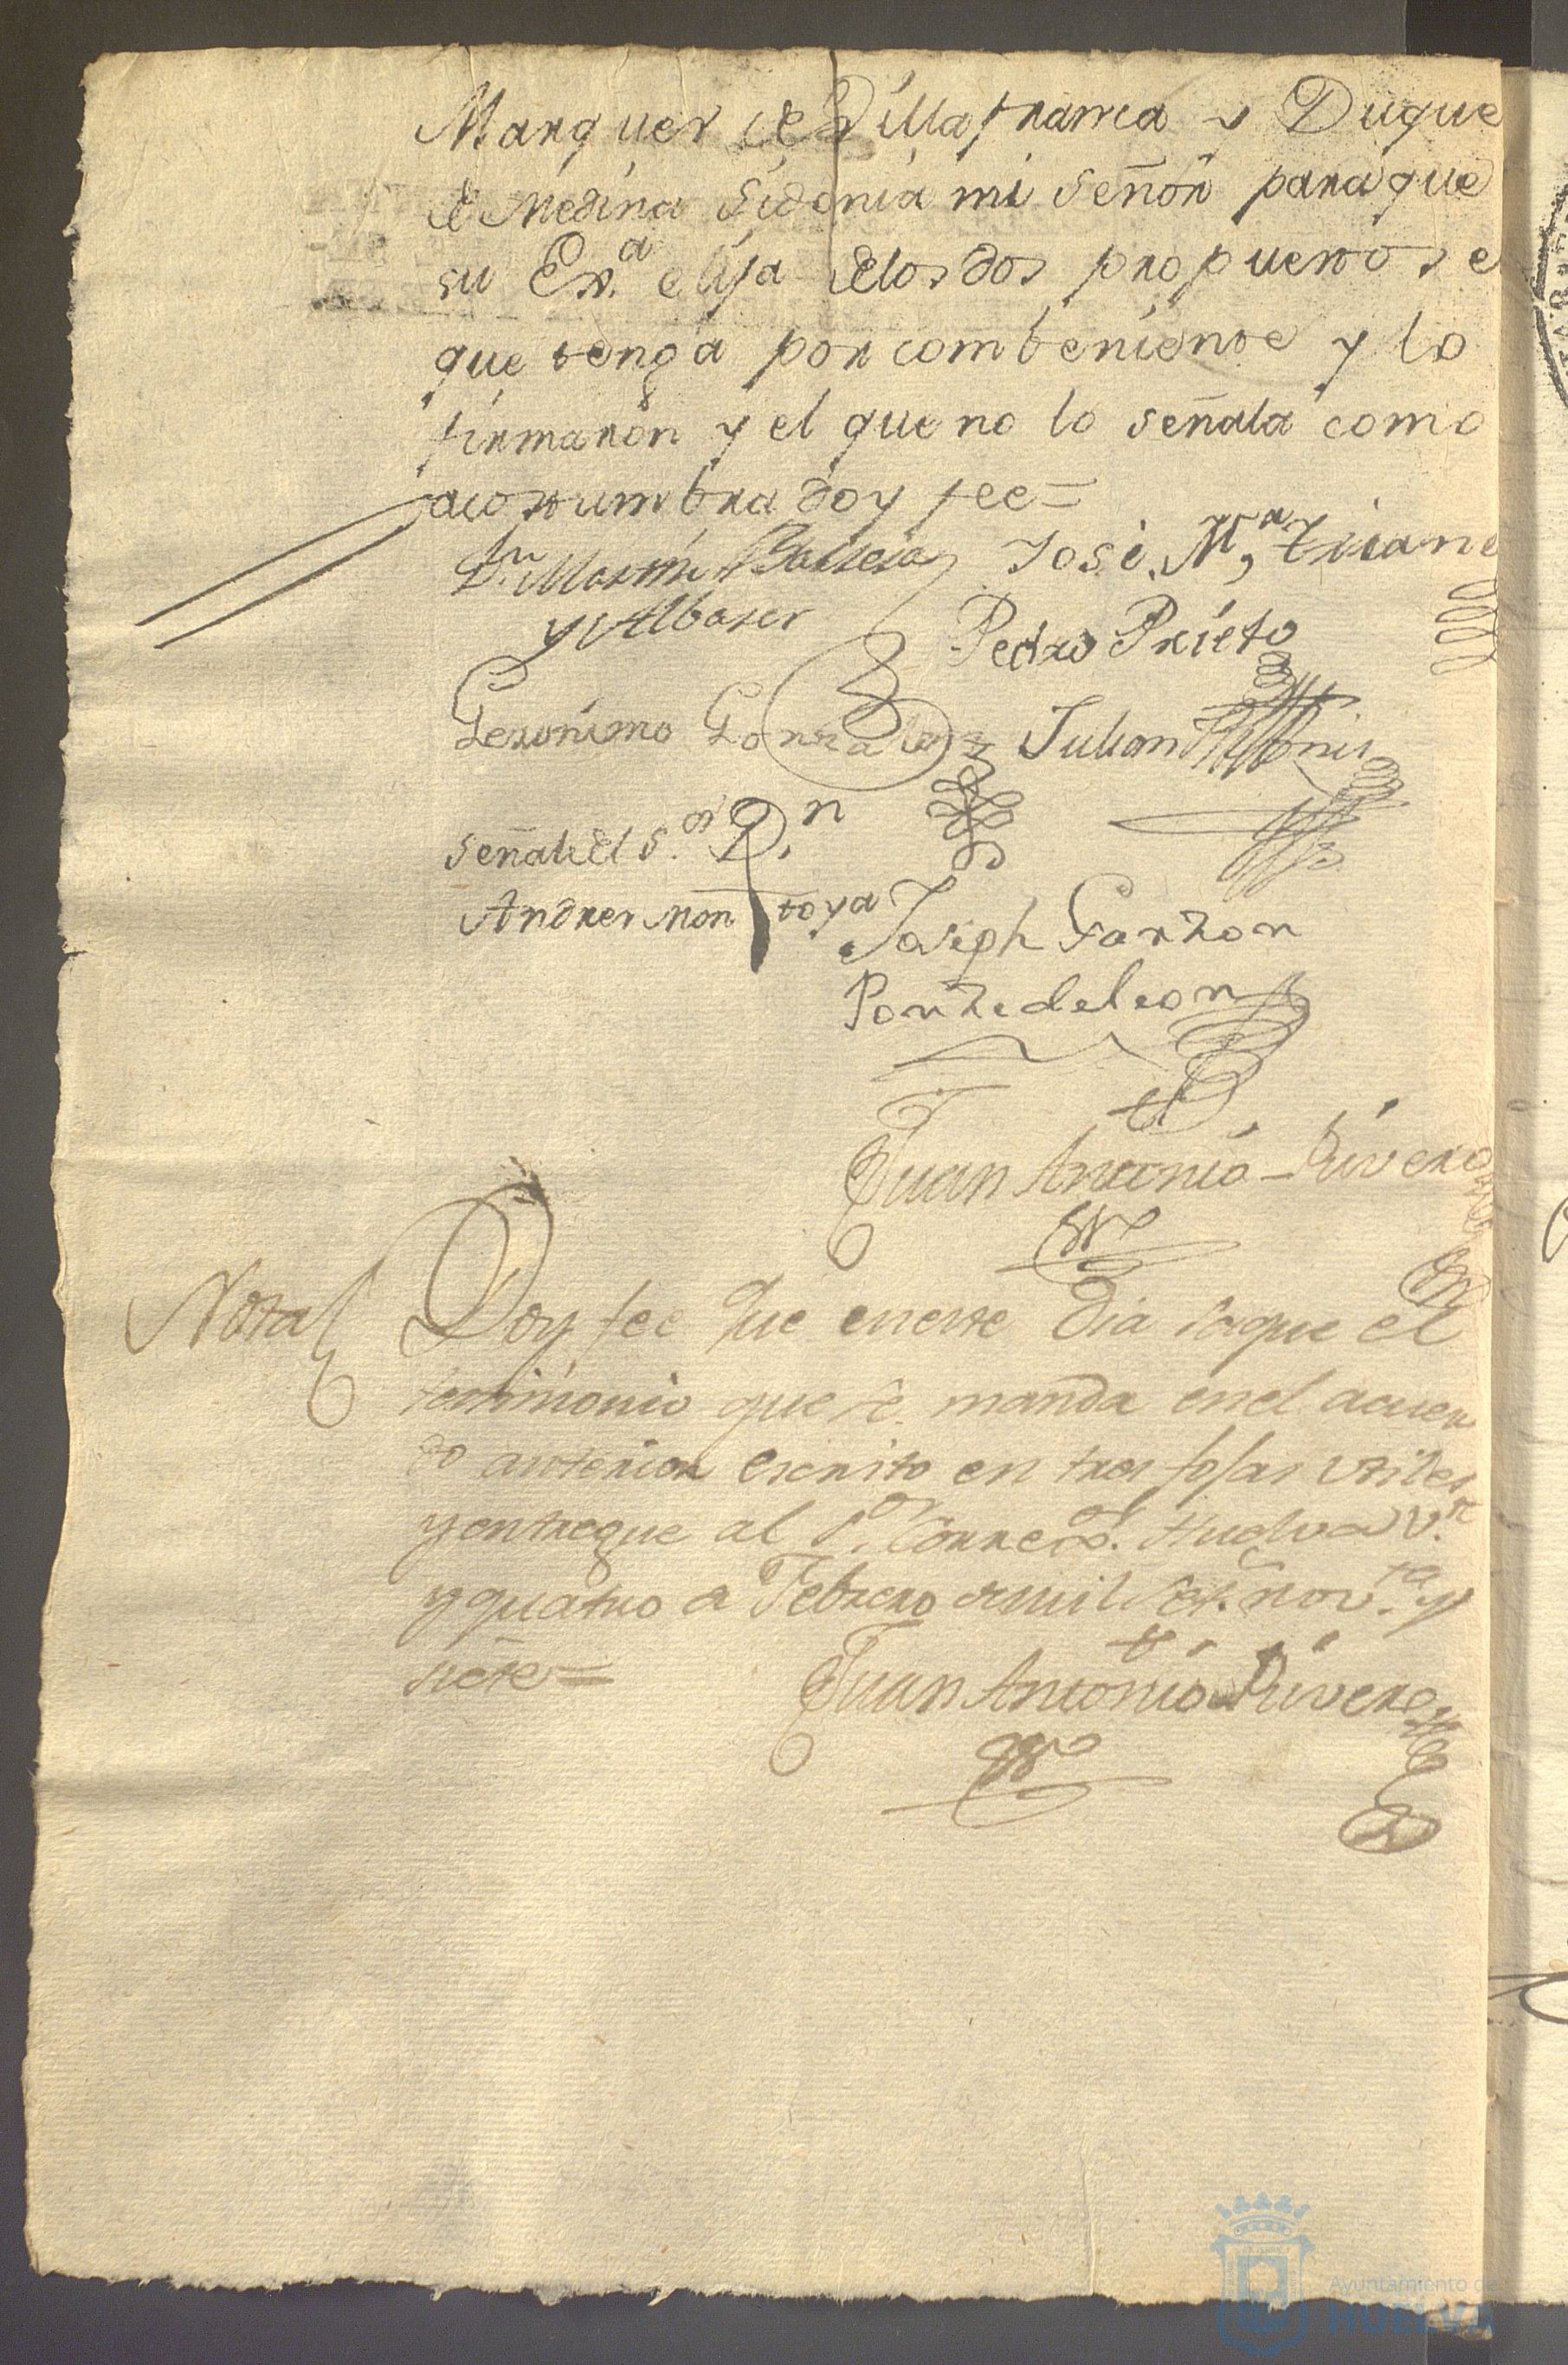 Marques de Villafranca y Duque
de Medina Sidonia mi señor para que
su Exª. elija delos dos propuestos e
que tenga por combeniente y lo
firmaron y el que no lo señala como
acostumbra doy fee=
Dn. Martin Barrera
y Albaser
José Mª, Triano
Pedro Prieto
Geronimo Gonzalez
Julian
señal del Sor. Dn.
Andres Montoya
Joseph Garzon
Ponze de leon
Juan Antonio Rivero
Nota
Doy fee que eneste Dia saque el
testimonio que se manda enel acuer
do anterior escrito en tres fojas utiles
y entregue al Sor. Correxor. Huelva Vte
y quatro de Febrero demil set. novta. y
siete=
Juan Antonio Rivero
Ayuntamiento de
HUELVA